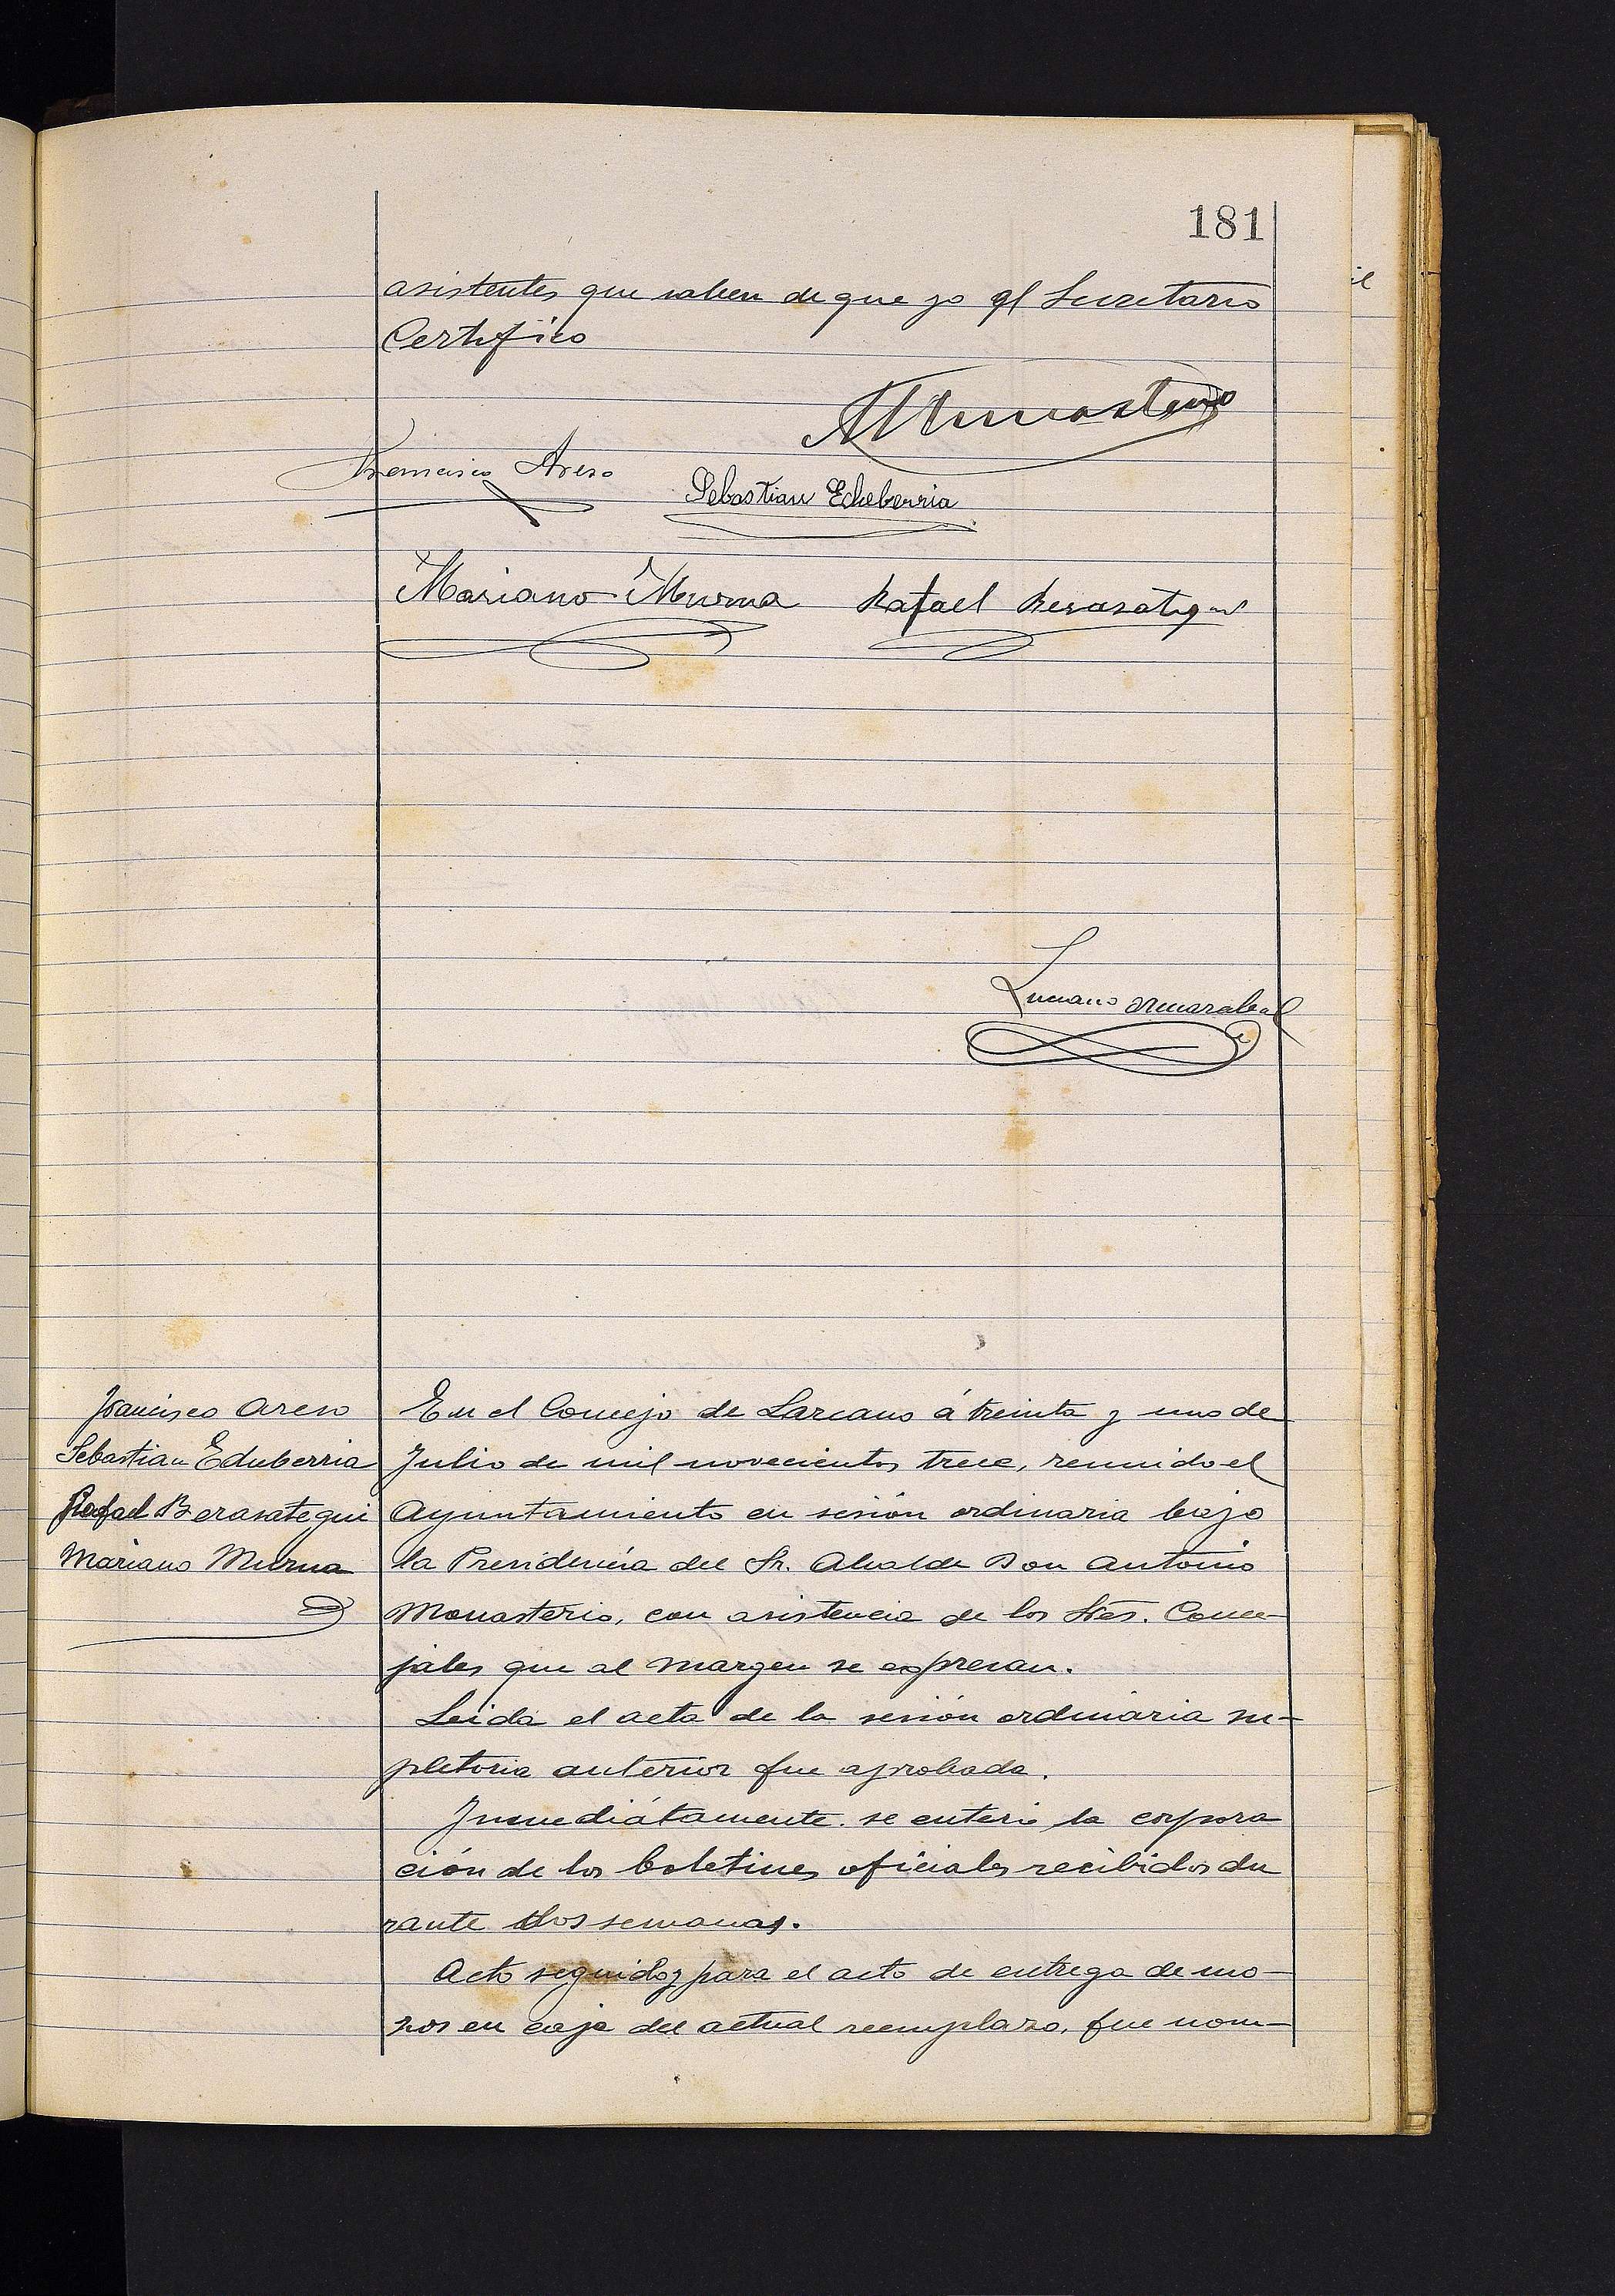 181
asistentes que saben de que yo el Secretario
Certifico
AMonasterio
Francisco Areso
Sebastian Echeberria
Mariano Murua Rafael Berasategui
Luciano
Francisco Areso
Sebastian Echeberria
Rafael Berasategui
Mariano Murua
En el Concejo de Lazcano á treinta y uno de
Julio de mil novecientos trece, reunido el
Ayuntamiento en sesión ordinaria bajo
la Presidencia del Sr. Alcalde Don Antonio
Monasterio, con asistencia de los Sres. Conce-
jales que al margen se expresan.
Leida el acta de la sesión ordinaria su-
pletoria anterior fue aprobada.
Inmediátamente se enteró la corpora
ción de los boletines oficiales recibidos du
rante dos semanas.
Acto seguido y para el acto de entrega de mo-
zos en caja del actual reemplazo, fue nom-